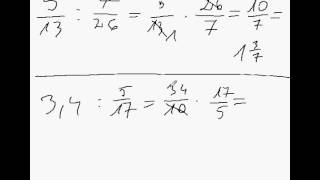 5/13 : 7/26 = 5/13 1 · 26/7 = 10/7 =
1 3/7
3,4 : 5/17 = 34/10 · 17/5 =